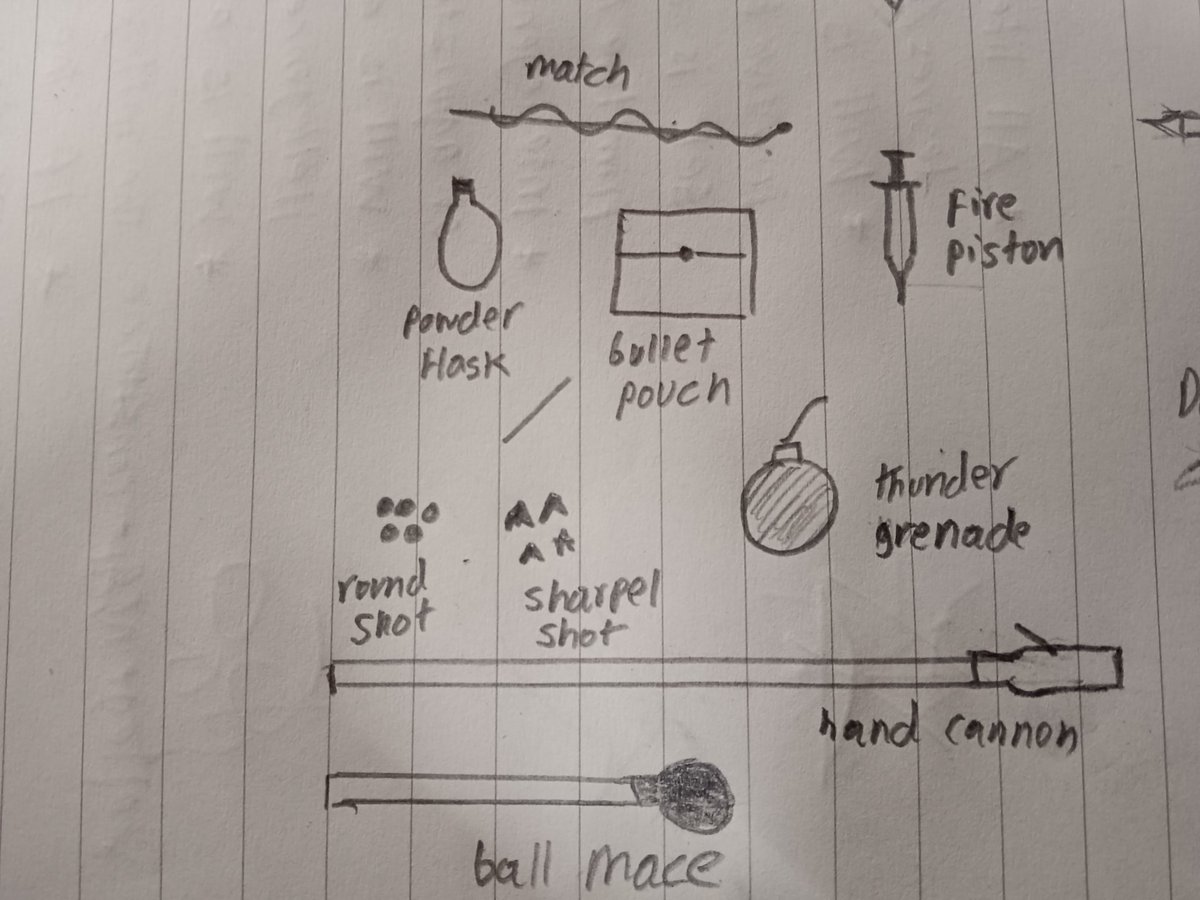 match
Fire
piston
powder
flask
bullet
pouch
thunder
grenade
round
shot
sharpel
shot
hand cannon
ball mace